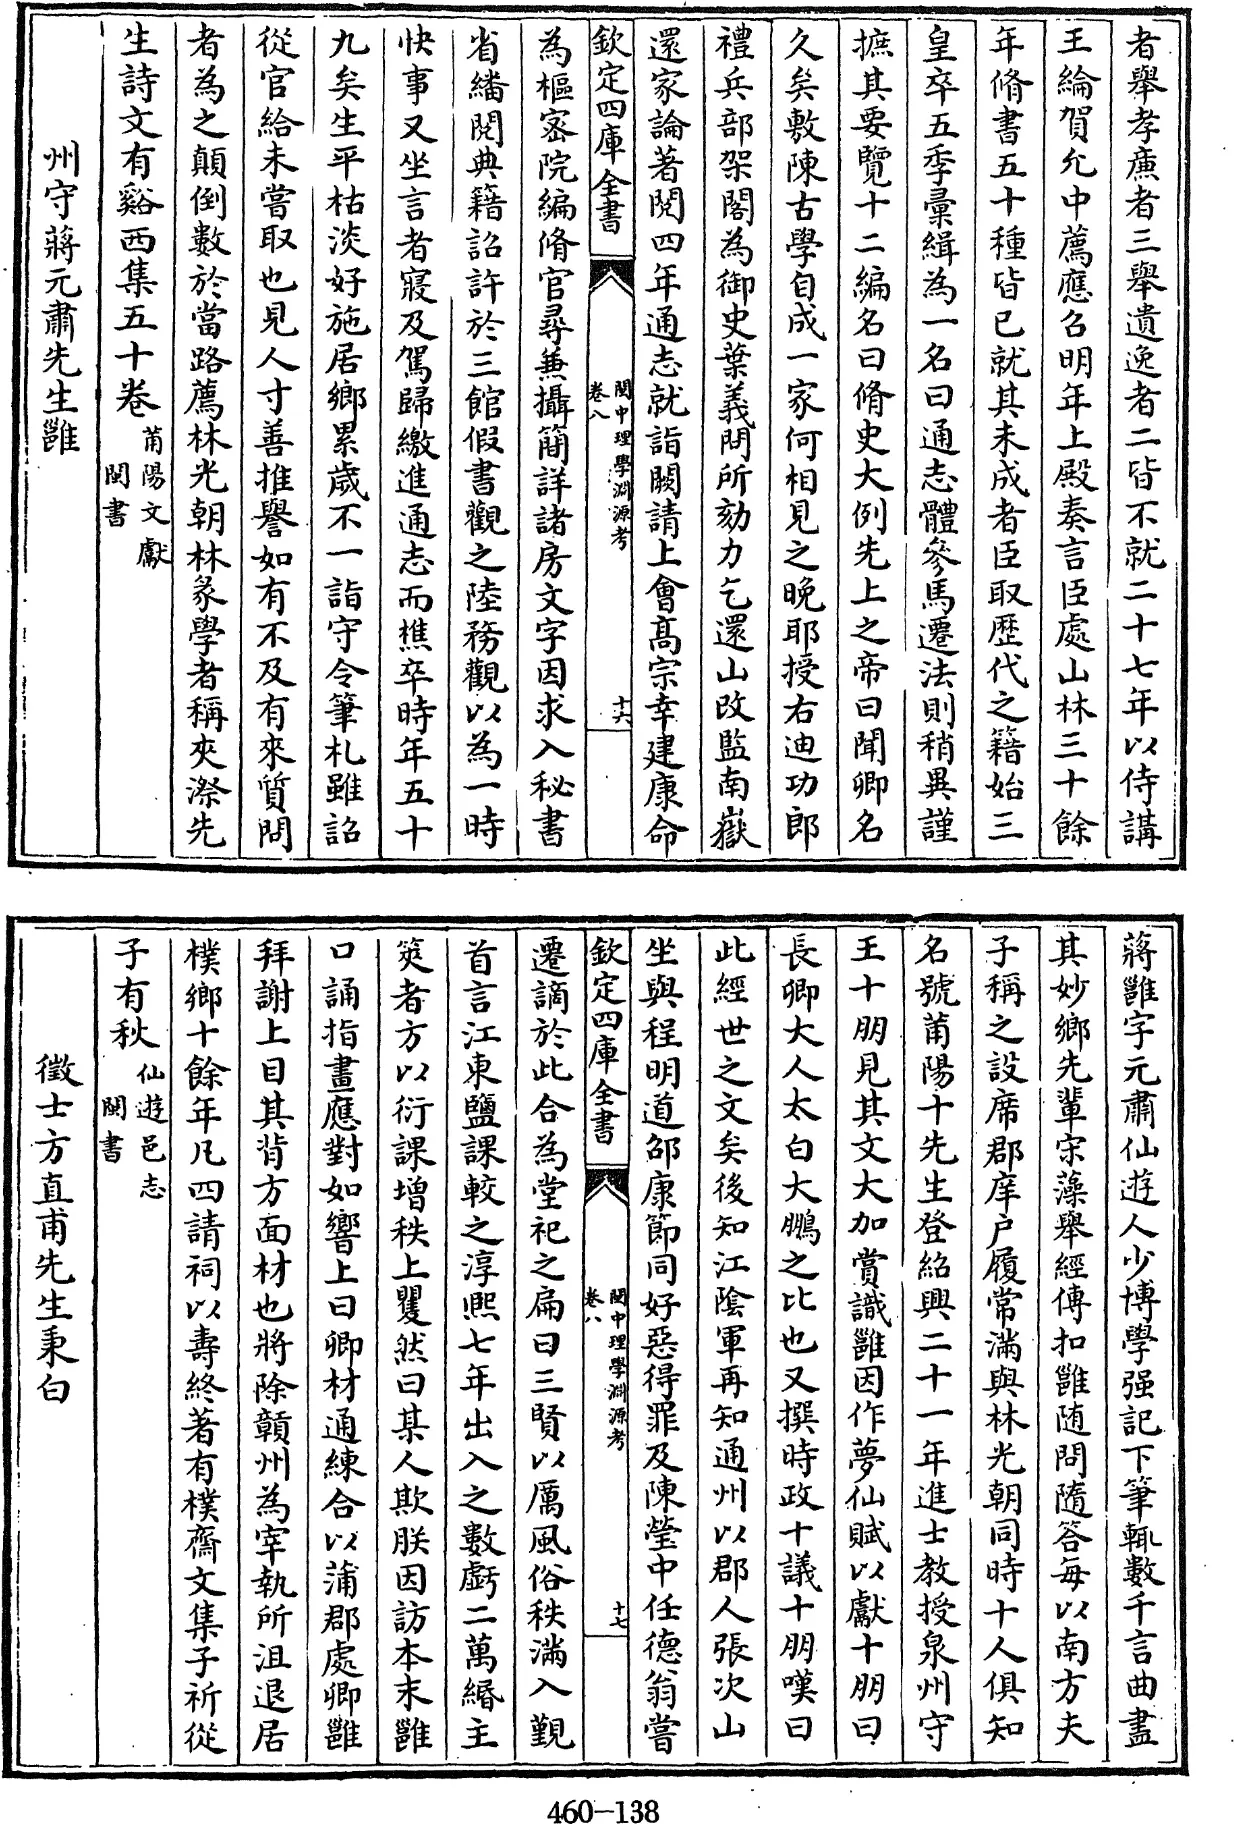 者舉孝廉者三舉遺逸者二皆不就二十七年以侍講
王綸賀允中薦應召明年上殿奏言臣處山林三十餘
年脩書五十種皆已就其未成者臣取歴代之籍始三
皇卒五季彙緝為一名曰通志體參馬遷法則稍異謹
摭其要覽十二編名曰脩史大例先上之帝曰聞卿名
久矣敷陳古學自成一家何相見之晚耶授右迪功郎
禮兵部架閣為御史葉義問所劾力乞還山改監南嶽
還家論著閱四年通志就詣闕請上會高宗幸建康命
欽定四庫全書
閩中理學淵源考
卷八
十六
為樞密院編脩官尋兼攝簡詳諸房文字因求入秘書
省繙閱典籍詔許於三館假書觀之陸務觀以為一時
快事又坐言者寢及駕歸繳進通志而樵卒時年五十
九矣生平枯淡好施居鄉累歲不一詣守令筆札雖詔
從官給未嘗取也見人寸善推譽如有不及有來質問
者為之顛倒數於當路薦林光朝林彖學者稱夾漈先
生詩文有谿西集五十卷莆陽文獻
閩書
州守蔣元肅先生雝
蔣雝字元肅仙遊人少博學强記下筆輒數千言曲盡
其妙鄉先輩宋藻舉經傳扣雝随問隨答每以南方夫
子稱之設席郡庠戸履常滿與林光朝同時十人俱知
名號莆陽十先生登紹興二十一年進士教授泉州守
王十朋見其文大加賞識雝因作夢仙賦以獻十朋曰
長卿大人太白大鵬之比也又撰時政十議十朋嘆曰
此經世之文矣後知江陰軍再知通州以郡人張次山
坐與程明道邵康節同好惡得罪及陳瑩中任德翁嘗
欽定四庫全書
閩中理學淵源考
卷八
十七
遷謫於此合為堂祀之扁曰三賢以厲風俗秩滿入覲
首言江東鹽課較之淳熙七年出入之數虧二萬緡主
筴者方以衍課增秩上矍然曰某人欺朕因訪本末雝
口誦指畫應對如響上曰卿材通練合以蒲郡處卿雝
拜謝上目其背方面材也將除贛州為宰執所沮退居
樸鄉十餘年凡四請祠以壽終著有樸齋文集子祈從
子有秋仙遊邑志
閩書
徵士方直甫先生秉白
460-138